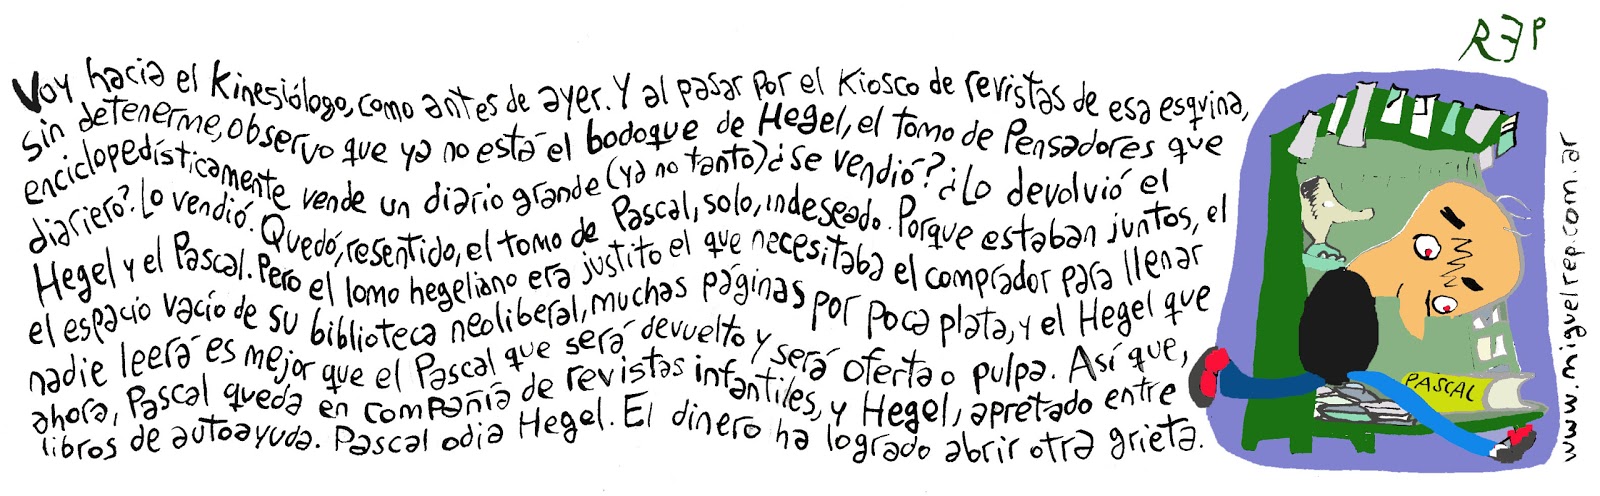 Voy hacia el Kinesiólogo, como antes de ayer. Y al pasar por el Kiosco de revistas de esa esquina,
sin detenerme, observo que ya no está el bodoque de Hegel, el tomo de Pensadores que
enciclopedísticamente vende un diario grande (ya no tanto) ¿Se vendió? ¿Lo devolvió el
diariero? Lo vendió. Quedó, resentido, el tomo de Pascal, solo, indeseado. Porque estaban juntos, el
Hegel y el Pascal. Pero el lomo hegeliano era justito el que necesitaba el comprador para llenar
el espacio vacío de su biblioteca neoliberal, muchas páginas por poca plata, y el Hegel que
nadie leerá es mejor que el Pascal que será devuelto y será oferta o pulpa. Así que,
ahora, Pascal queda en compañía de revistas infantiles, y Hegel, apretado entre
libros de autoayuda. Pascal odia Hegel. El dinero ha logrado abrir otra grieta.
REP
PASCAL
www.miguelrep.com.ar